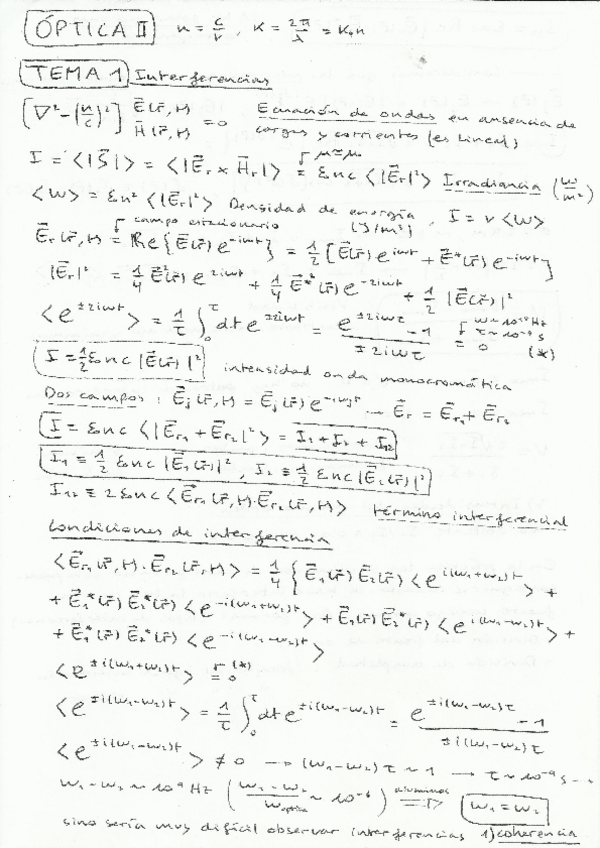 ÓPTICA II n = c/v, K = 2π/λ = K₀n
TEMA 1 Interferencias
[∇² - (n/c)²] E⃗(r⃗,t) H⃗(r⃗,t) = 0 Ecuación de ondas en ausencia de
cargas y corrientes (es lineal)
I = <|S⃗|> = <|E⃗r x H⃗r|> = ε₀nc <|E⃗r|²> Irradiancia (w/m²)
<w> = ε₀n² <|E⃗r|²> Densidad de energía (J/m³), I = v <w>
campo estacionario
E⃗r(r⃗,t) = Re{E⃗(r⃗)e^-iwt} = 1/2 [E⃗(r⃗)e^iwt + E⃗*(r⃗)e^-iwt]
|E⃗r|² = 1/4 E⃗²(r⃗)e^2iwt + 1/4 E⃗*²(r⃗)e^-2iwt + 1/2 |E⃗(r⃗)|²
<e^±2iwt> = 1/τ ∫₀^τ dt e^±2iwt = (e^±2iwτ - 1)/(±2iwτ) = 0 (*)
I = 1/2 ε₀nc |E⃗(r⃗)|² intensidad onda monocromática
Dos campos: E⃗j(r⃗,t) = E⃗j(r⃗)e^-iwjt ... E⃗r = E⃗r1 + E⃗r2
I = ε₀nc <|E⃗r1 + E⃗r2|²> = I1 + I2 + I12
I1 ≡ 1/2 ε₀nc |E⃗1(r⃗)|², I2 ≡ 1/2 ε₀nc |E⃗2(r⃗)|²
I12 ≡ 2ε₀nc <E⃗r1(r⃗,t)·E⃗r2(r⃗,t)> término interferencial
Condiciones de interferencia
<E⃗r1(r⃗,t)·E⃗r2(r⃗,t)> = 1/4 {E⃗1(r⃗)E⃗2(r⃗) <e^i(w1+w2)t> +
+ E⃗1*(r⃗)E⃗2*(r⃗) <e^-i(w1+w2)t> + E⃗1(r⃗)E⃗2*(r⃗) <e^i(w1-w2)t> +
+ E⃗1*(r⃗)E⃗2*(r⃗) <e^-i(w1-w2)t>
<e^±i(w1+w2)t> = 0 (*)
<e^±i(w1-w2)t> = 1/τ ∫₀^τ dt e^±i(w1-w2)t = (e^±i(w1-w2)τ - 1)/(±i(w1-w2)τ)
<e^±i(w1-w2)t> ≠ 0 → (w1-w2)τ ~ 1 → τ ~ 10⁻⁹ s →
w1-w2 ~ 10⁹ Hz ((w1-w2)/w óptica ~ 10⁻⁶) ⇒ w1 = w2
sino sería muy difícil observar interferencias 1) coherencia